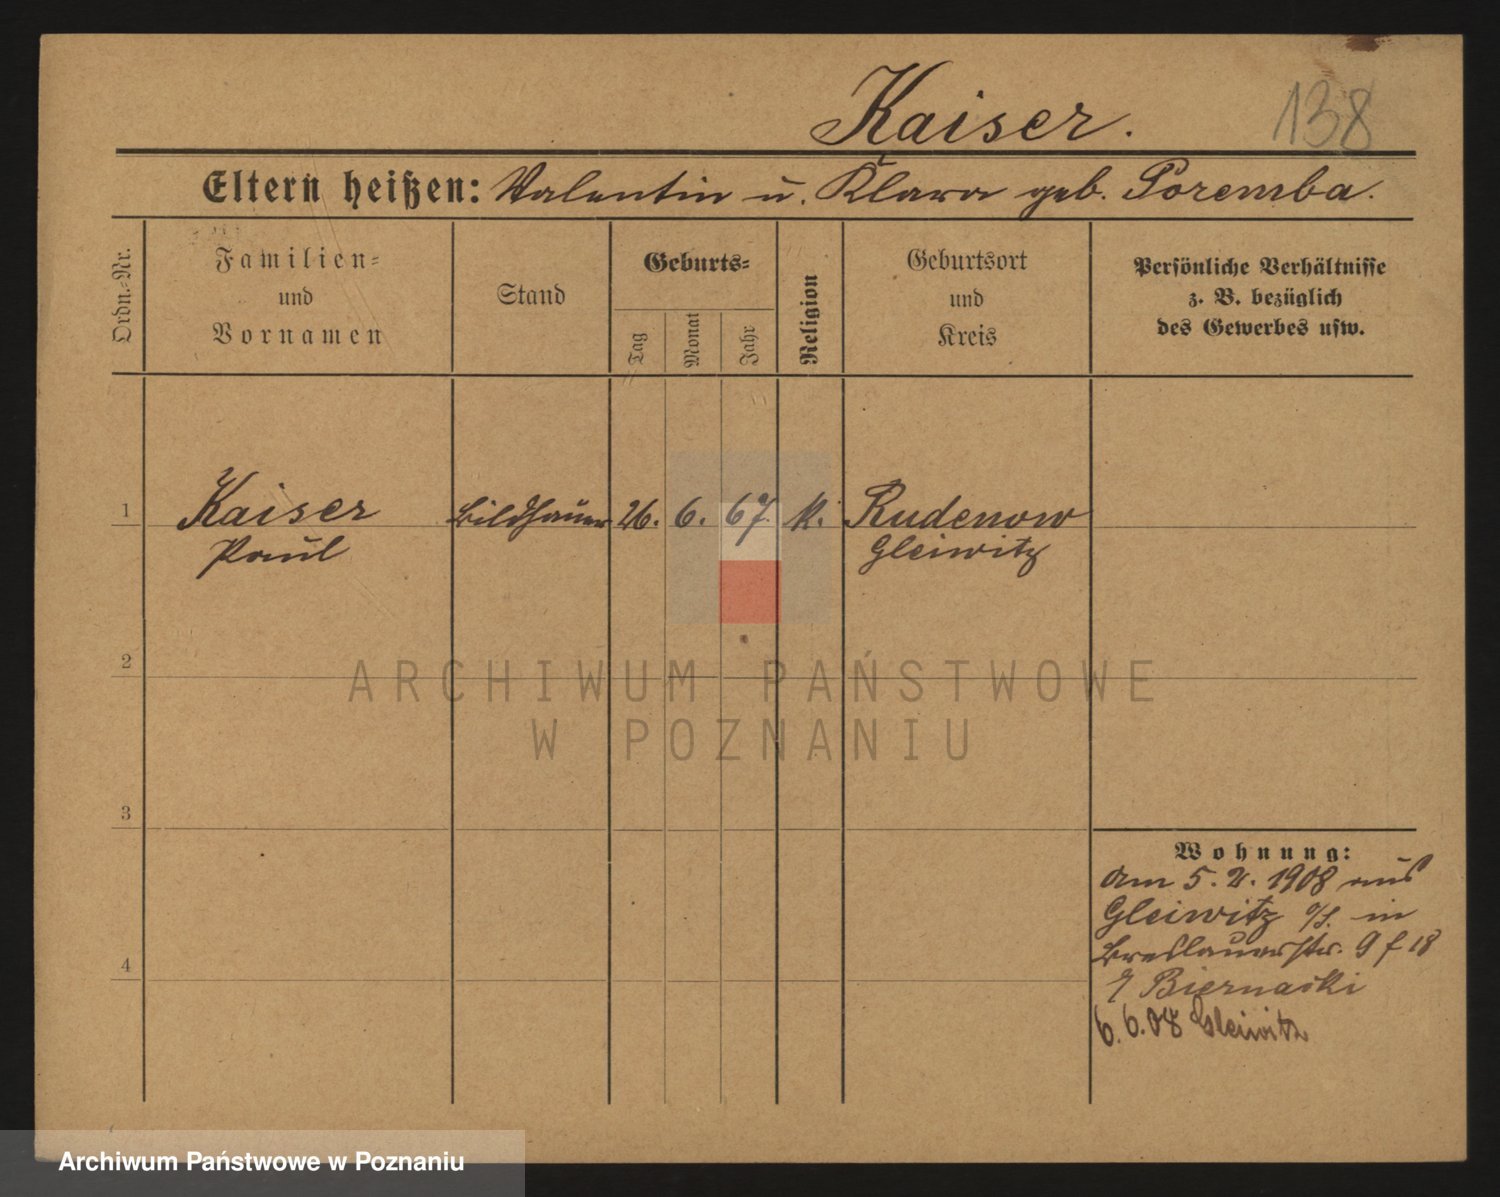 Kaiser. 138
Eltern heißen: Valentin u. Klara geb. Poremba.
Ordn.-Nr.
Familien-
und
Vornamen
Stand
Geburts-
Tag
Monat
Jahr
Religion
Geburtsort
und
Kreis
Persönliche Verhältnisse
z. B. bezüglich
des Gewerbes usw.
1 Kaiser Bildhauer 26. 6. 67. k. Rudenow
Paul Gleiwitz
2
ARCHIWUM PAŃSTWOWE
W POZNANIU
3
Wohnung:
am 5. 2. 1908 aus
Gleiwitz o/S. in
Breslauerstr. 9 f 18
Biernacki
4
6.6.08 Gleiwitz
Archiwum Państwowe w Poznaniu